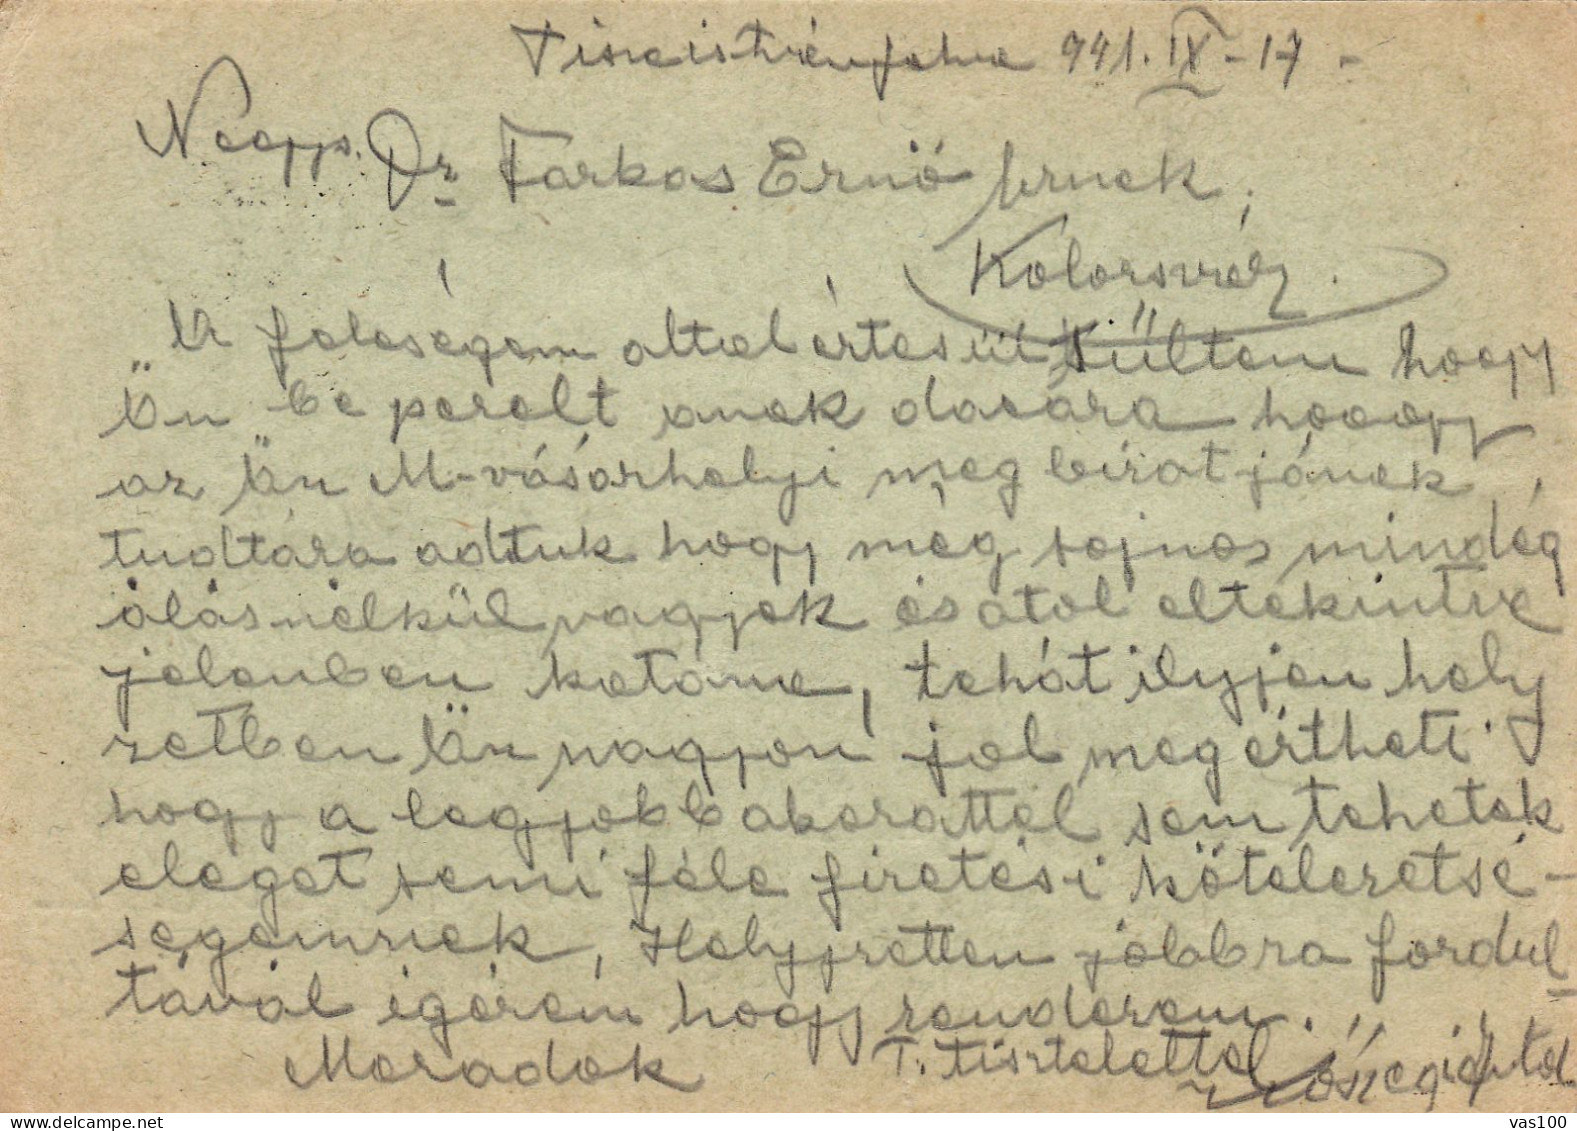 Tiszaistvánfalva 941. IX - 17 -
Nagys. Dr Farkas Ernő urnak,
Kolozsvár.
A feleségem által értesül sültem hogy
Ön be perelt anak dacára hogy
az Ön M-vásárhelyi megbízatjának
tudtára adtuk hogy még sajnos mindég
álásnélkül vagyok és atol eltekintve
jelenben katona, tehát ilyjen hely
zetben Ön nagyon jol megértheti
hogy a legjobb akarattal sem tehetek
eleget semi féle fizetési kötelezetsé-
ségemnek, Helyjzetten jóbbra fordul
tával igérem hogy rendezem.
Maradok T. tisztelettel